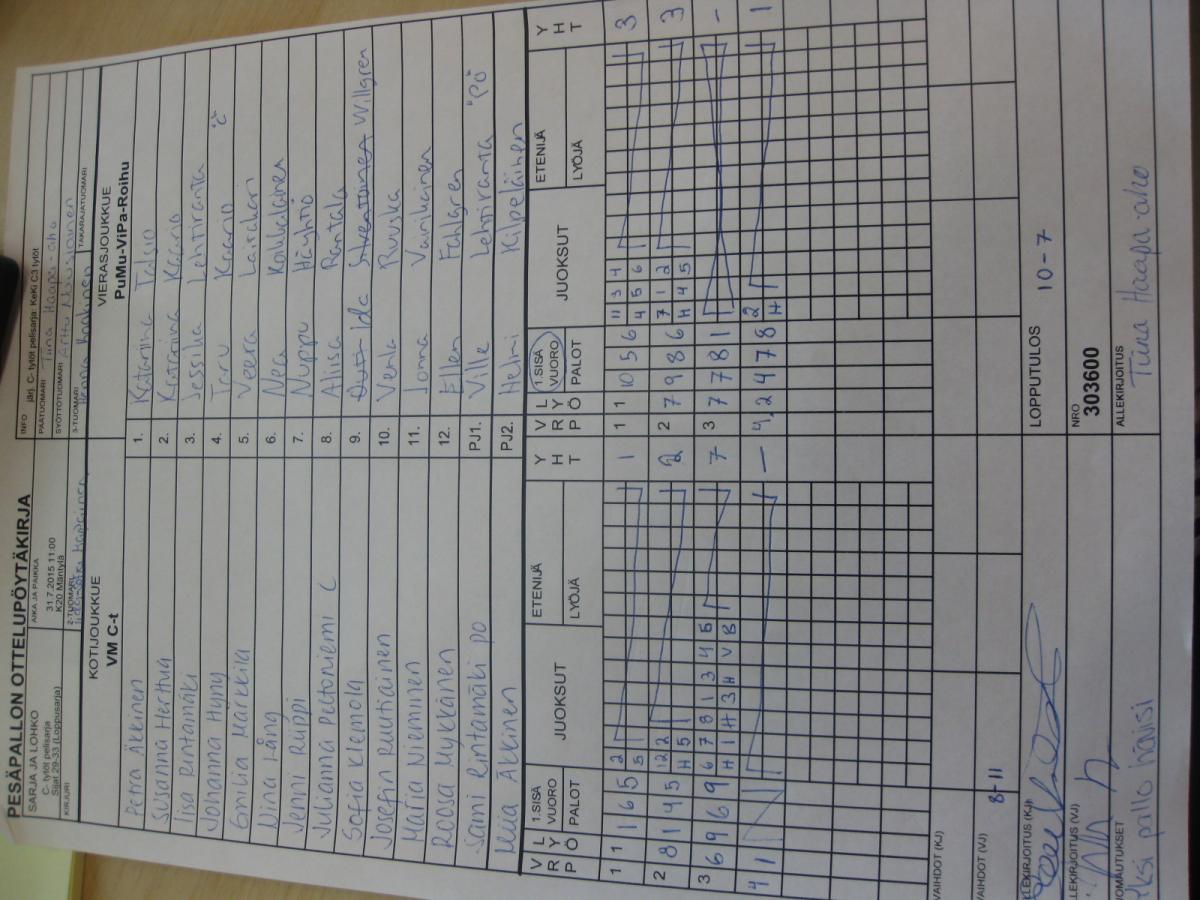 PESÄPALLON OTTELUPÖYTÄKIRJA
SARJA JA LOHKO
C- tytöt pelisarja
Sijat 29-33 (Loppusarja)
KIRJURI
AIKA JA PAIKKA
31.7.2015 11:00
K20 Mäntylä
2-TUOMARI
INFO järj. C- tytöt pelisarja: Keki C3 tytöt
PÄÄTUOMARI Tiina Haapa-aho
SYÖTTÖTUOMARI Arttu Nousiainen
3-TUOMARI
TAKARAJATUOMARI
KOTIJOUKKUE VIERASJOUKKUE
VM C-t PuMu-ViPa-Roihu
Petra Äkkinen 1. Katariina Talsio
Susanna Herttua 2. Katariina Kaario
Iisa Rintamäki 3. Jessika Lehtiranta
Johanna Hyny 4. Taru Kaario "C"
Emilia Markkila 5. Veera Laitakari
Nina Lång 6. Nea Kolukalainen
Jenni Riippi 7. Nuppu Häyhtiö
Julianna Peltoniemi C 8. Aliisa Rantala
Sofia Klemola 9. Ida Willgren
Josefin Ruutiainen 10. Venla Ruuska
Maria Nieminen 11. Jonna Vainikainen
Roosa Mykkänen 12. Ellen Fahlgren
Sami Rintamäki PO PJ1. Ville Lehtiranta "PÖ"
Miia Äkkinen PJ2. Helmi Kilpeläinen
V R P L Y Ö 1.SISÄ VUORO PALOT JUOKSUT ETENIJÄ LYÖJÄ Y H T V R P L Y Ö 1.SISÄ VUORO PALOT JUOKSUT ETENIJÄ LYÖJÄ Y H T
1 1 1 6 5 2 1 1 1 10 5 6 11 3 4 3
5 4 5 6
2 8 1 4 5 12 2 2 2 7 9 8 6 7 1 2 3
H 5 H 4 5
3 6 9 6 9 6 7 8 1 3 4 5 7 3 7 7 8 1 -
H 1 H 3 H V B
4 1 - 4 2 4 7 8 2 1
H
VAIHDOT (KJ)
VAIHDOT (VJ) 8-11
LLEKIRJOITUS (KJ) LOPPUTULOS 10-7
LLEKIRJOITUS (VJ) NRO
303600
UOMAUTUKSET ALLEKIRJOITUS
Yksi pillo häisi Tiina Haapa-aho